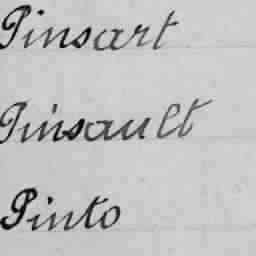 Pinsart
Pinsault
Pinto